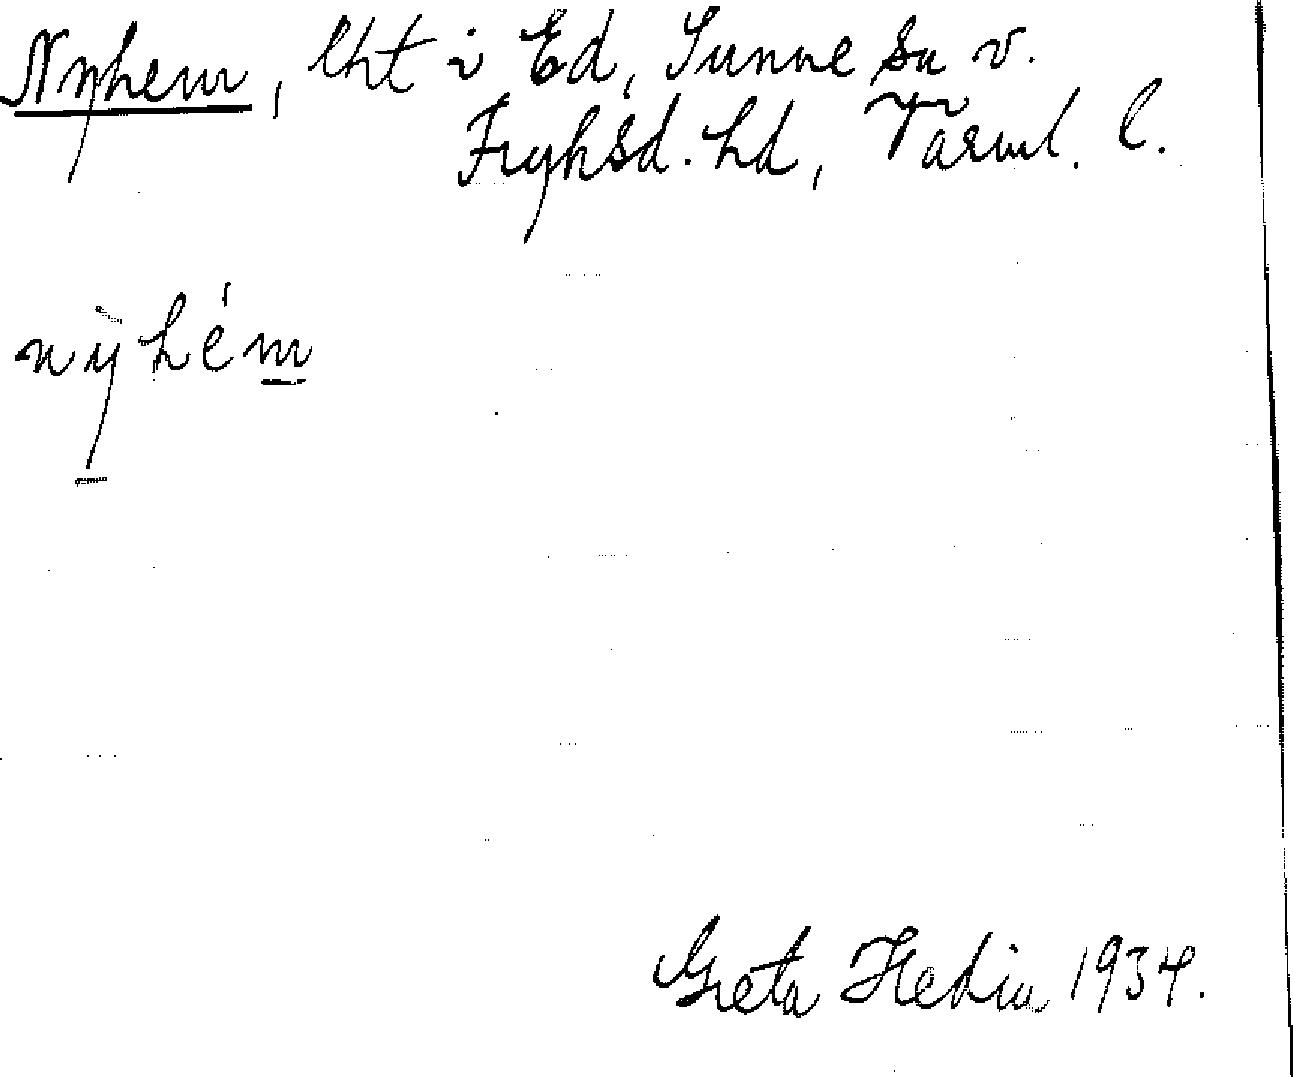 Nyhem, lht i Ed, Sunne sn v.
Fryksd. hd, Värml. l.
nỳhém
Greta Hedin 1934.